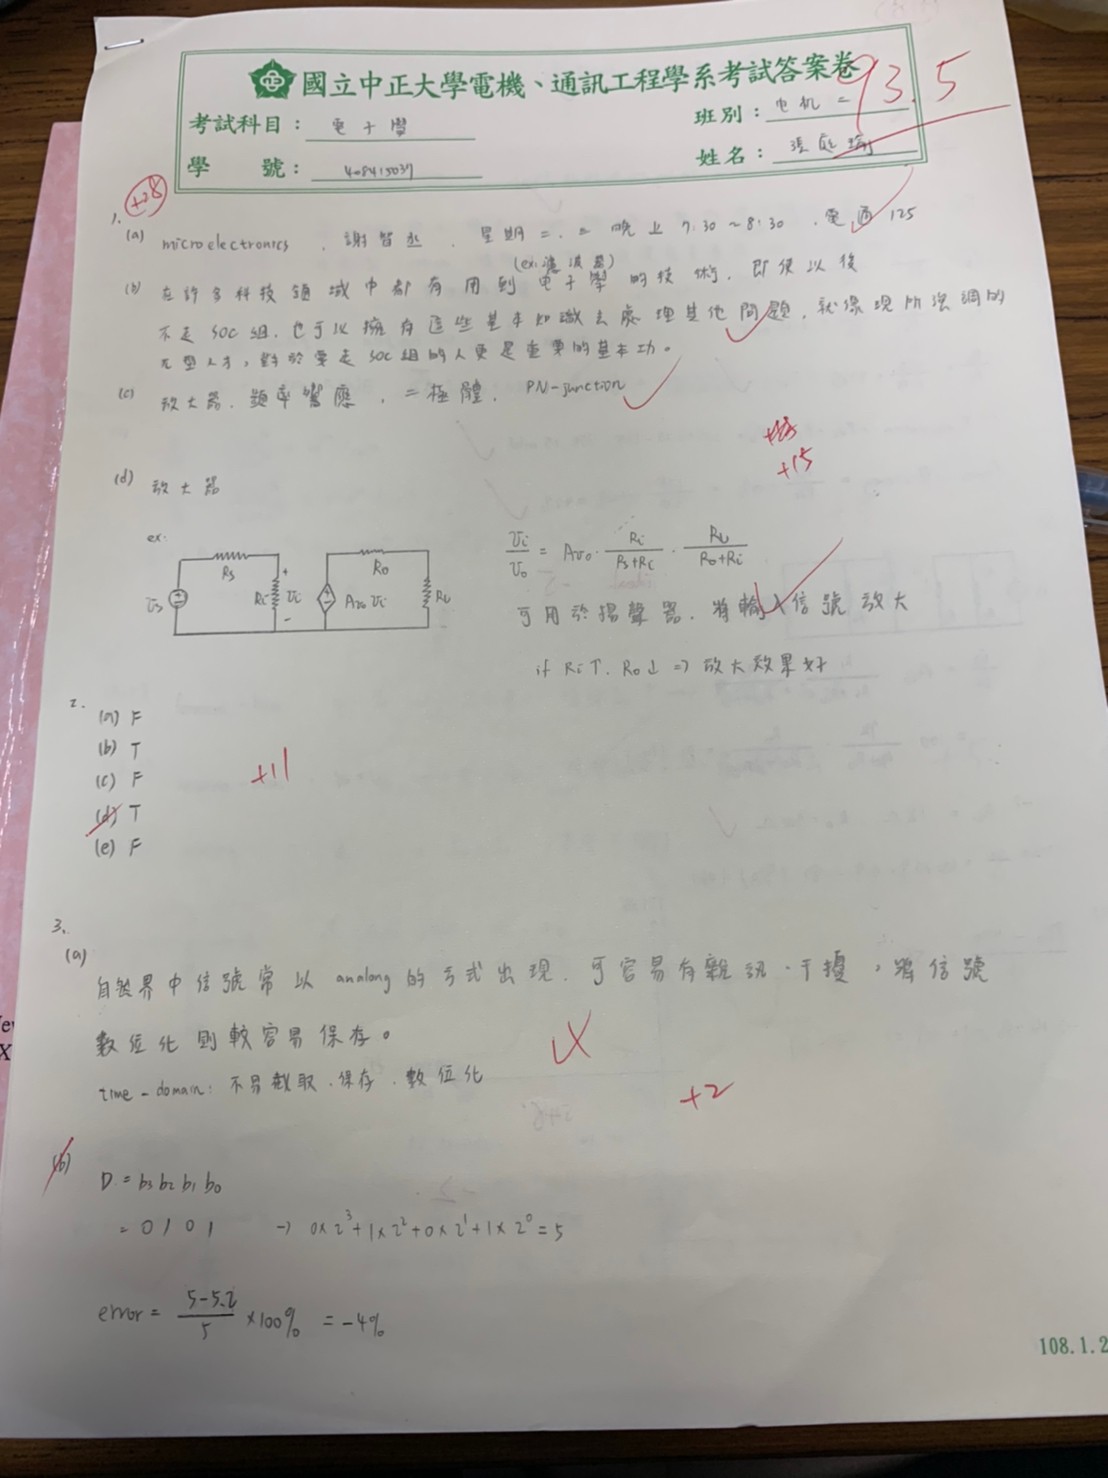 國立中正大學電機、通訊工程學系考試答案卷
93.5
考試科目：電子學
班別：电机二
學號：408415037
姓名：張庭瑜
+28
1.
(a) microelectronics、謝智丞、星期二、二晚上 7:30~8:30、電通 125
(ex:濾波器)
(b) 在許多科技領域中都有用到電子學的技術，即使以後
不走 SOC 組，也可以擁有這些基本知識去處理其他問題，就像現所強調的
π型人才，對於要走 SOC 組的人更是重要的基本功。
(c) 放大器、頻率響應、二極體、PN-junction
+15
(d) 放大器
ex:
Rs Ri Vi Vs Ro Avo Vi RL
Vi/Vo = Avo · Ri/(Rs+Ri) · RL/(Ro+Ri)
可用於揚聲器，將輸入信號放大
if Ri↑、Ro↓ => 放大效果好
2.
(a) F
(b) T
(c) F
+11
(d) T
(e) F
3.
(a)
自然界中信號常以 analong 的方式出現，可容易有雜訊、干擾，將信號
數位化則較容易保存。
time-domain: 不易截取、保存、數位化
+2
(b)
D = b3 b2 b1 b0
= 0 1 0 1 → 0×2³+1×2²+0×2¹+1×2⁰=5
error = (5-5.2)/5 ×100% = -4%
108.1.2